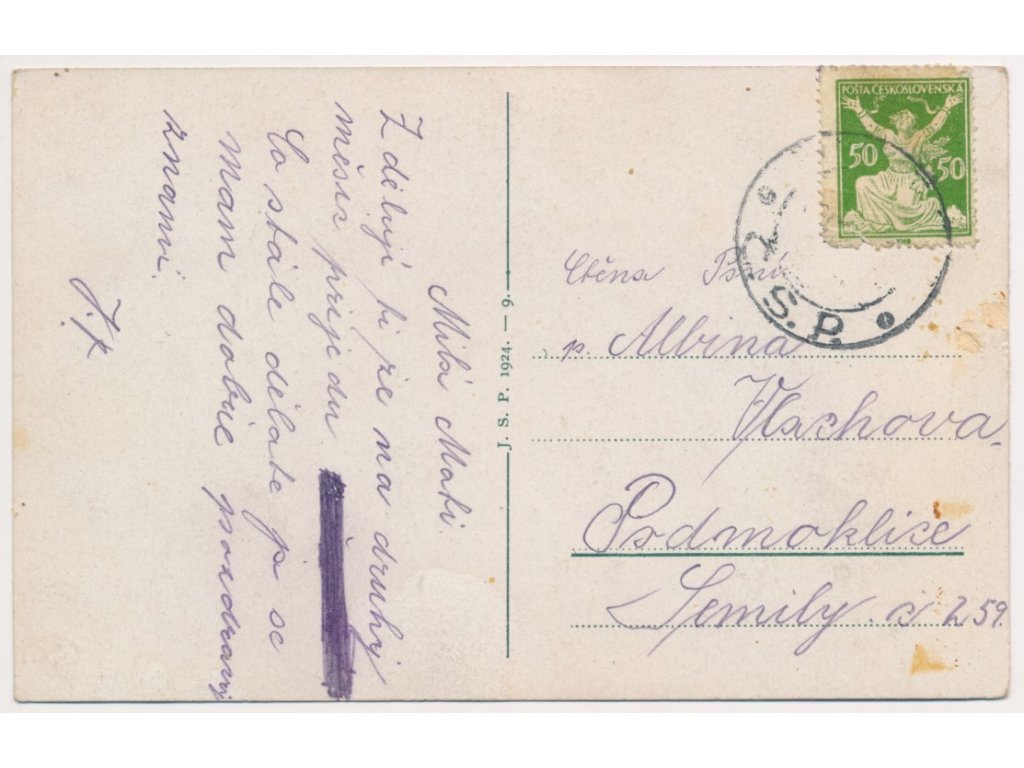 Milá Mati.
Zděluji ti že na druhý
měsíc prijedu
Co stále děláte já se
mám dobrie pozdravuj
známi.
J. S. P. 1924. — 9.
POŠTA ČESKOSLOVENSKÁ
50 50
S. P.
Ctěna Paní
p. Albina
Vlachova
Podmoklice
Semily. č 259.